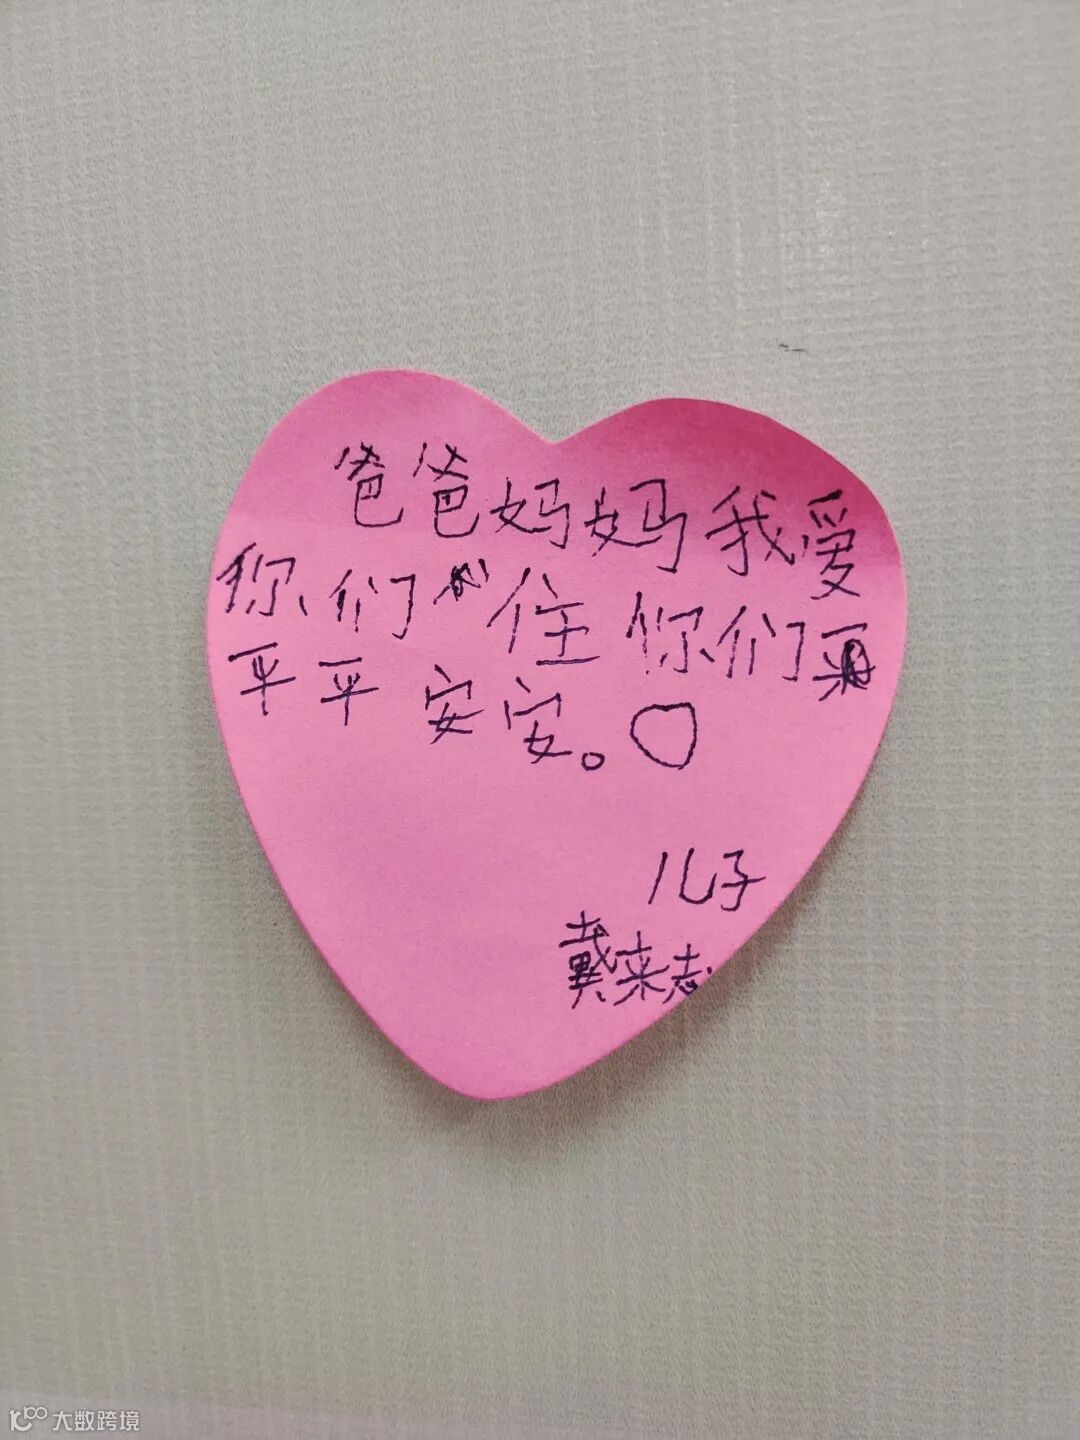 爸爸妈妈我爱
你们住你们
平平安安。
儿子
戴来志
大数跨境